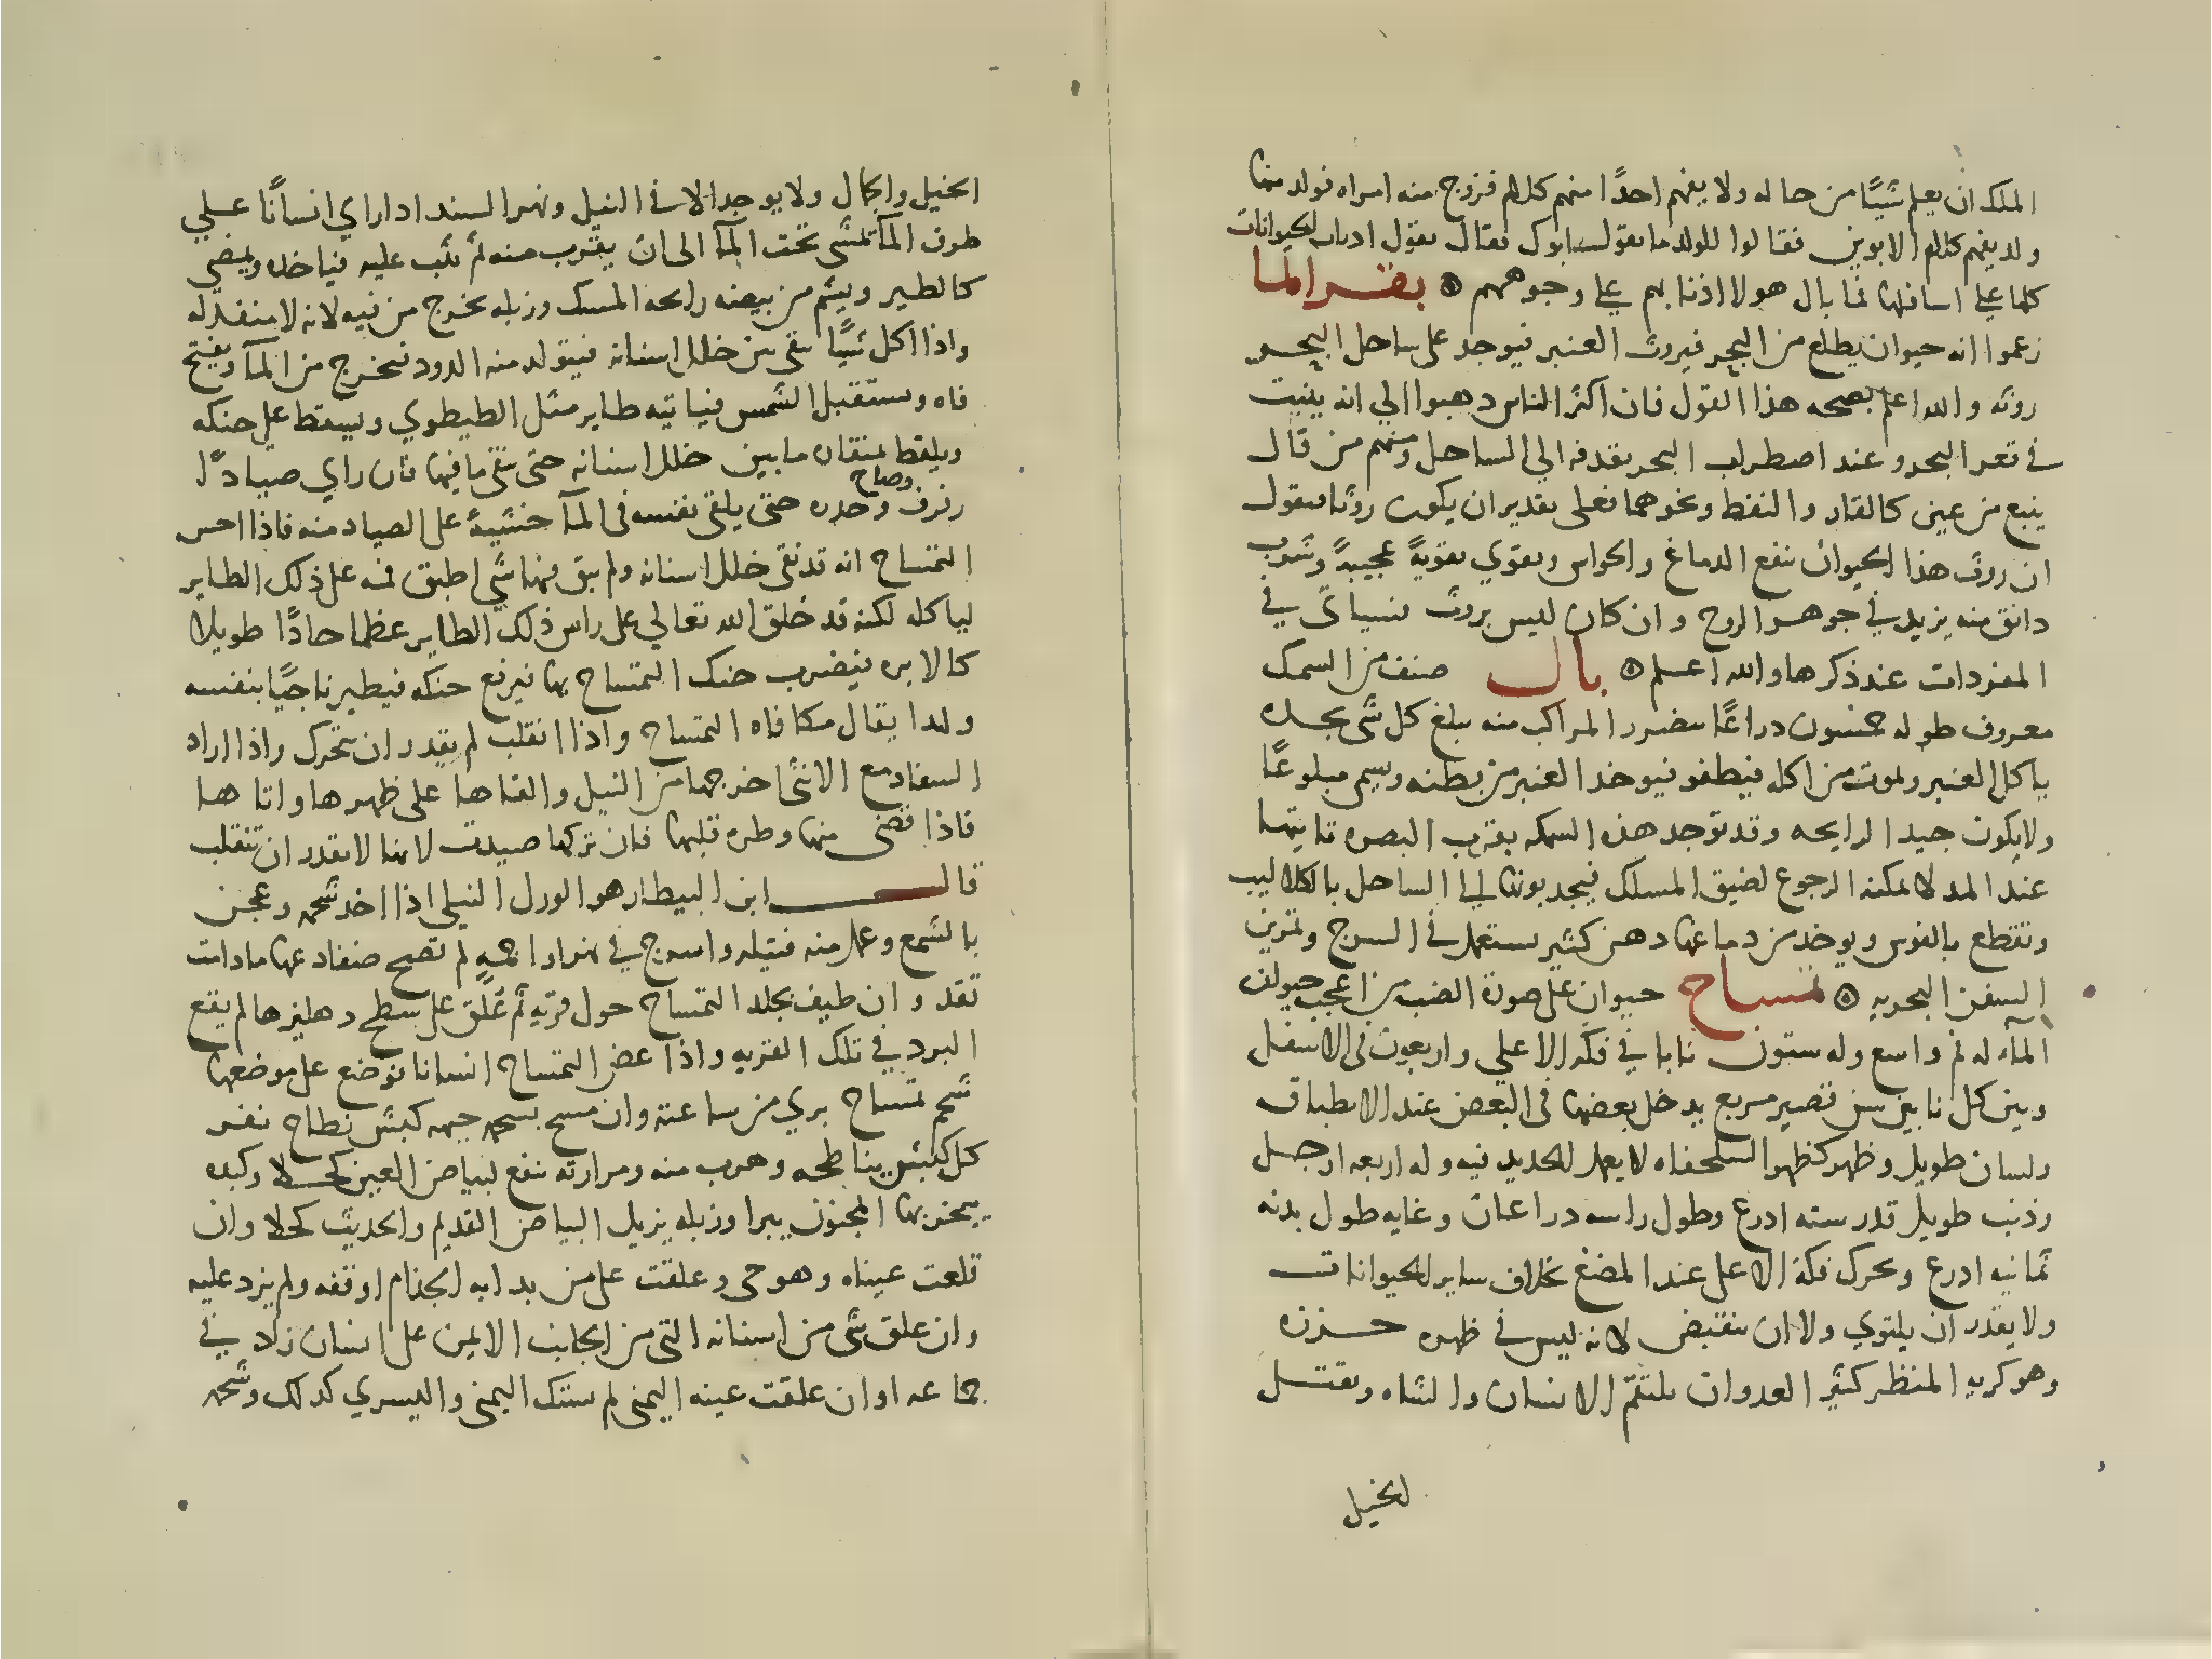 الملك ان يعلم شيًا من حاله ولا يفهم احدًا منهم كلام فزوج منه امراه فولد منها
ولد يفهم كلام الابوين فقالوا للولد ما يقول ابوك فقال يقول اذناب الحيوانات
كلها علي اسافلها فما بال هولا اذنابهم علي وجوههم ۞ بقر الما
زعموا انه حيوان يطلع من البحر فيروث العنبر فيوجد على ساحل البحر
روثه والله اعلم بصحه هذا القول فان اكثر الناس دهبوا الي انه ينبت
في قعر البحر وعند اضطراب البحر يقدفه الي الساحل ومنهم من قال
ينبع من عين كالقار والنفط ونحوهما فعلى تقدير ان يكون روثا فيقول
ان روث هذا الحيوان ينفع الدماغ والحواس ويقوي تقويهً عجيبهً وشرب
دانق منه يزيد في جوهر الروح وان كان ليس بروث فسياتي في
المفردات عند ذكرها والله اعلم ۞ بال صنف من السمك
معروف طوله خمسون دراعًا يتضرر المراكب منه يبلغ كل شي يجده
ياكل العنبر ويموت من اكله فيطفو فيوخد العنبر من بطنه ويسمي مبلوعًا
ولا يكون جيد الرايحه وقد توجد هذه السمكه بقرب البصره تاتيها
عند المد لا يمكنه الرجوع لضيق المسلك فيجدبونها الي الساحل بالكلاليب
وتقطع بالفوس ويوخد من دماغها دهن كثير يستعمل في السرج وتمرين
السفن البحريه ۞ تمساح حيوان على صورة الضب من اعجب حيوان
المآء له فم واسع وله ستون نابا في فكه الاعلي واربعون في الاسفل
وبين كل نابين سن قصير مربع يدخل بعضها في البعض عند الانطباق
ولسان طويل وظهر كظهر السلحفاه لا يعمل الحديد فيه وله اربعه ارجل
وذنب طويل قدر سته ادرع وطول راسه دراعان وغايه طول بدنه
ثمانيه ادرع ويحرك فكه الاعلى عند المضغ بخلاف ساير الحيوانات
ولا يقدر ان يلتوي ولا ان ينقبض لانه ليس في ظهره خرزه
وهو كريه المنظر كثير العدوان يلتقم الانسان والشاه ويقتل
الخيل
الخيل والجمال ولا يوجد الا في النيل ونهر السند ادا راي انسانًا علي
طرف المآ تمشي تحت المآ الى ان يقرب منه ثم يثب عليه فياخده ويمضي
كالطير ويشم من بيضه رايحه المسك وزبله يخرج من فيه لانه لا منفد له
واذا اكل شيًا بقي بين خلل اسنانه فيتولد منه الدود فيخرج من المآ ويفتح
فاه ويستقبل الشمس فياتيه طاير مثل الطيطوي ويسقط على حنكه
ويلقط بمنقاره ما بين خلل اسنانه حتى ينقي ما فيها فان راي صيادًا
رفرف وصاح وحذره حتى يلقي نفسه فى المآ خشيةً على الصياد منه فاذا احس
التمساح انه قد نقي خلل اسنانه ولم يبق فيها شي اطبق فمه على ذلك الطاير
لياكله لكنه قد خلق الله تعالي على راس ذلك الطاير عظما حادًا طويلا
كالابره فيضرب حنك التمساح بها فيرفع حنكه فيطير ناجيًا بنفسه
ولهدا يقال مكافاه التمساح واذا انقلب لم يقدر ان يتحرك واذا اراد
السفاد مع الانثى اخرجها من النيل والقاها على ظهرها واتاها
فاذا قضى منها وطره قلبها فان تركها صيدت لانها لا تقدر ان تنقلب
قال ابن البيطار هو الورل النيلي اذا اخد شحمه وعجن
بالشمع وعمل منه فتيله واسرج في نهر او اجمه لم تصح ضفادعها ما دامت
تقد وان طيف بجلد التمساح حول قريه ثم عُلّق على سطح دهليزها لم يقع
البرد في تلك القريه واذا عض التمساح انسانا فوضع على موضعها
شحم تمساح بري من ساعته وان مسح بشحمه جبهه كبش نطاح نفر
كل كبش يناطحه وهرب منه ومرارته تنفع لبياض العين كحلا وكبده
يبخر بها المجنون يبرا وزبله يزيل البياض القديم والحديث كحلا وان
قلعت عيناه وهو حي وعلقت على من بدا به الجذام اوقفه ولم يزد عليه
وان علق شي من اسنانه التي من الجانب الايمن على انسان زاد في
جماعه او ان علقت عينه اليمنى لم يشتك اليمنى واليسري كدلك وشحمه